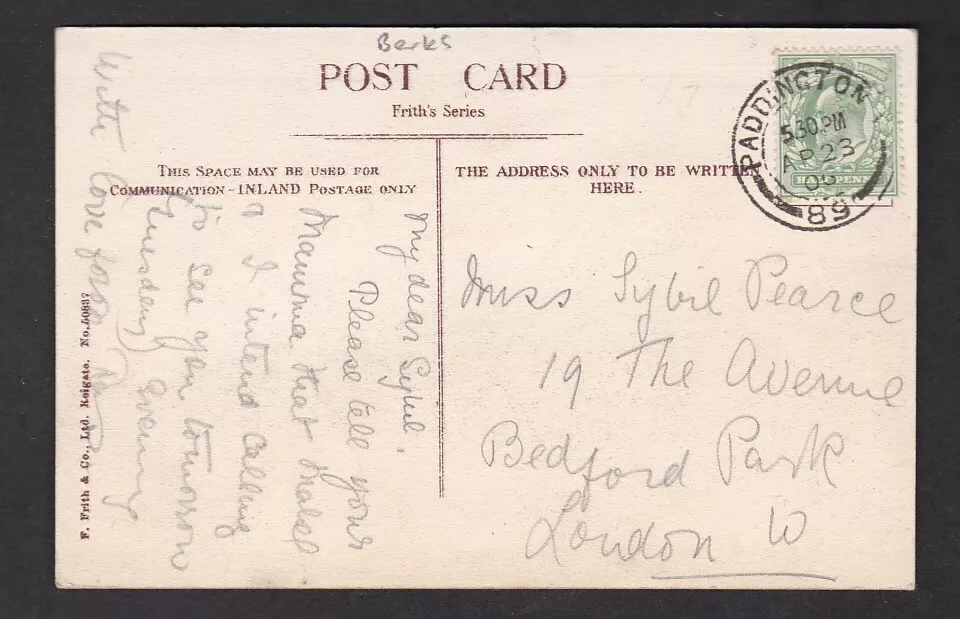 Berks
POST CARD
Frith's Series
THIS SPACE MAY BE USED FOR
COMMUNICATION - INLAND POSTAGE ONLY
THE ADDRESS ONLY TO BE WRITTEN
HERE.
PADDINGTON
5.30 PM
AP 23
89
HALFPENNY
My dear Sybil.
Please tell your
Mamma that Mabel
& I intend calling
to see you tomorrow
Tuesday Evening.
With love from
Miss Sybil Pearce
19 The Avenue
Bedford Park
London W
F. Frith & Co., Ltd. Reigate. No. 50837